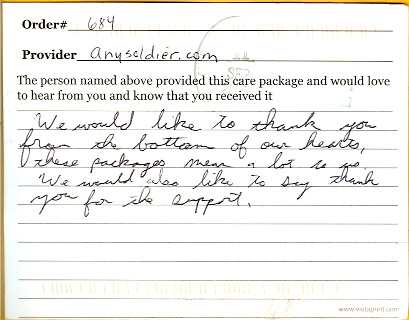 Order# 684
Provider anysoldier.com
The person named above provided this care package and would love
to hear from you and know that you received it
We would like to thank you
from the bottom of our hearts,
these packages mean a lot to us.
We would also like to say thank
you for the support.
www.vistaprint.com